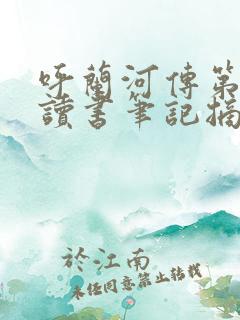 呼蘭河傳第
讀書筆記摘
於江南
未經同意禁止轉載